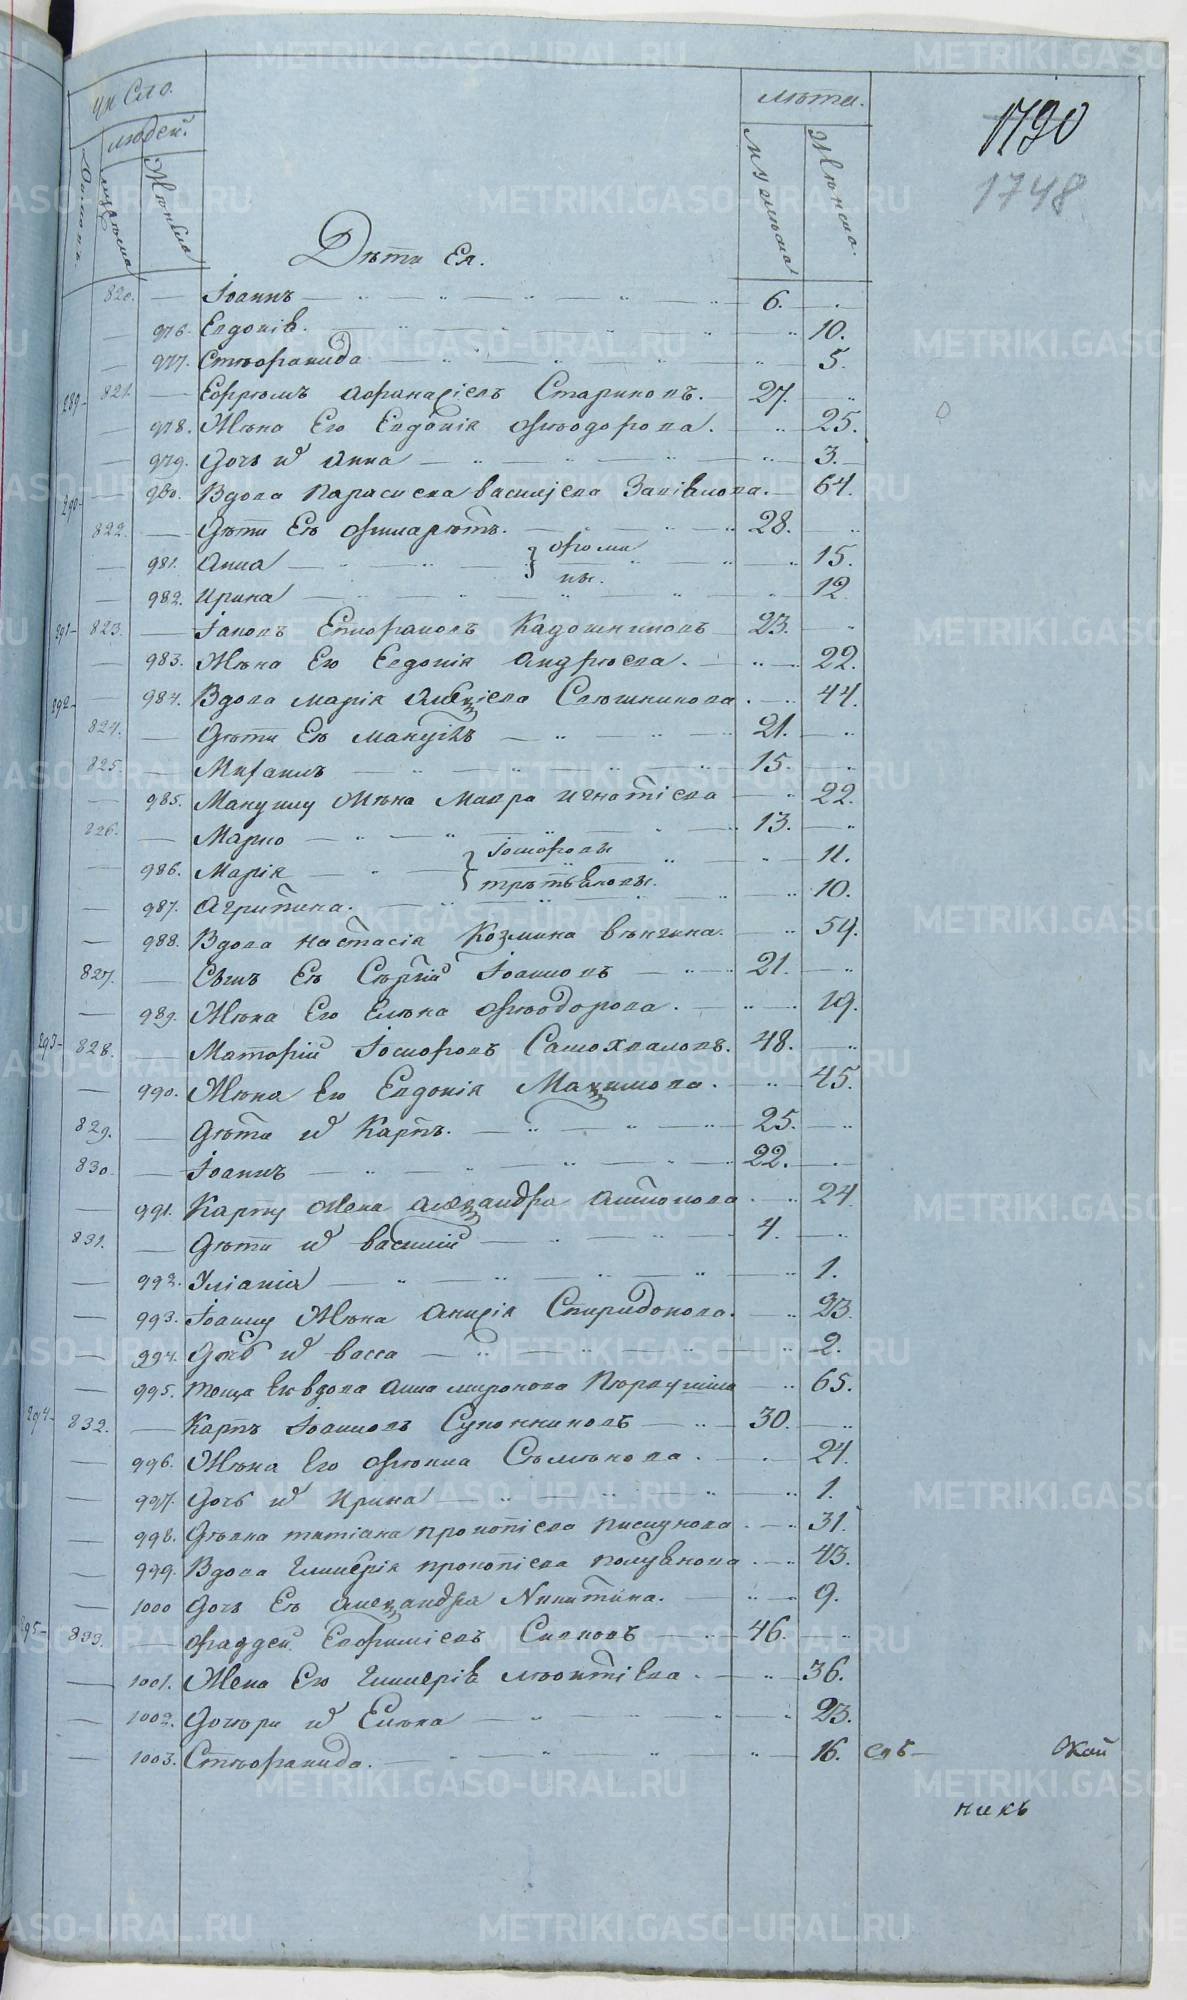 число
лѣта.
1790
людей.
1748
Домовъ.
мужеска
Женска
мужеска
Женска.
Дѣти Ея.
820. Іоаннъ 6.
976. Евдокія. 10.
977. Стефанида 5.
289 821. Ефремъ Афанасіевъ Стариковъ. 27.
978. Жена Его Евдокія Феодорова. 25.
979. Дочь их Анна 3.
290 980. Вдова Параскева Васильева 64.
822. Дѣти Ея Филаретъ. 28.
981. Анна 15.
982. Ирина 12
291 823. Іаковъ 23.
983. Жена Его Евдокія Андреева. 22.
292 984. Вдова Марія Алексіева 44.
824. Дѣти Ея Мануилъ 21.
825. Михаилъ 15.
985. Мануилу Жена Мавра Игнатіева 22.
826. Марко 13.
986. Марія Іосифовы 11.
987. Агрипина. 10.
988. Вдова Настасія Козмина 54.
827. Сынъ Ея Сергій Іоанновъ 21.
989. Жена Его Елена Феодорова. 19.
293 828. Іосифовъ Самохваловъ. 48.
990. Жена Его Евдокія Максимова. 45.
829. Дѣти их Карпъ. 25.
830. Іоаннъ 22.
991. Карпу Жена Александра Антонова 24
831. Дѣти их Василій 4.
992. Уліанія 1.
993. Іоанну Жена Анисія Спиридонова. 23.
994. Дочь их Васса 2.
995. Теща Ев вдова Анна Миронова 65.
294 832. Карпъ Іоанновъ 30.
996. Жена Его Фекла Семенова. 24.
997. Дочь их Ирина 1.
998. Девка Татіана Прокопіева Пискунова 31.
999. Вдова Гликерія Прокопіева 43.
1000 Дочь Ея Александра Никитина. 9.
295 833. Фаддей Евфиміевъ 46.
1001. Жена Его Гликерія Леонтіева 36.
1002. Дочери их Елена 23.
1003. Стефанида. 16.
никъ